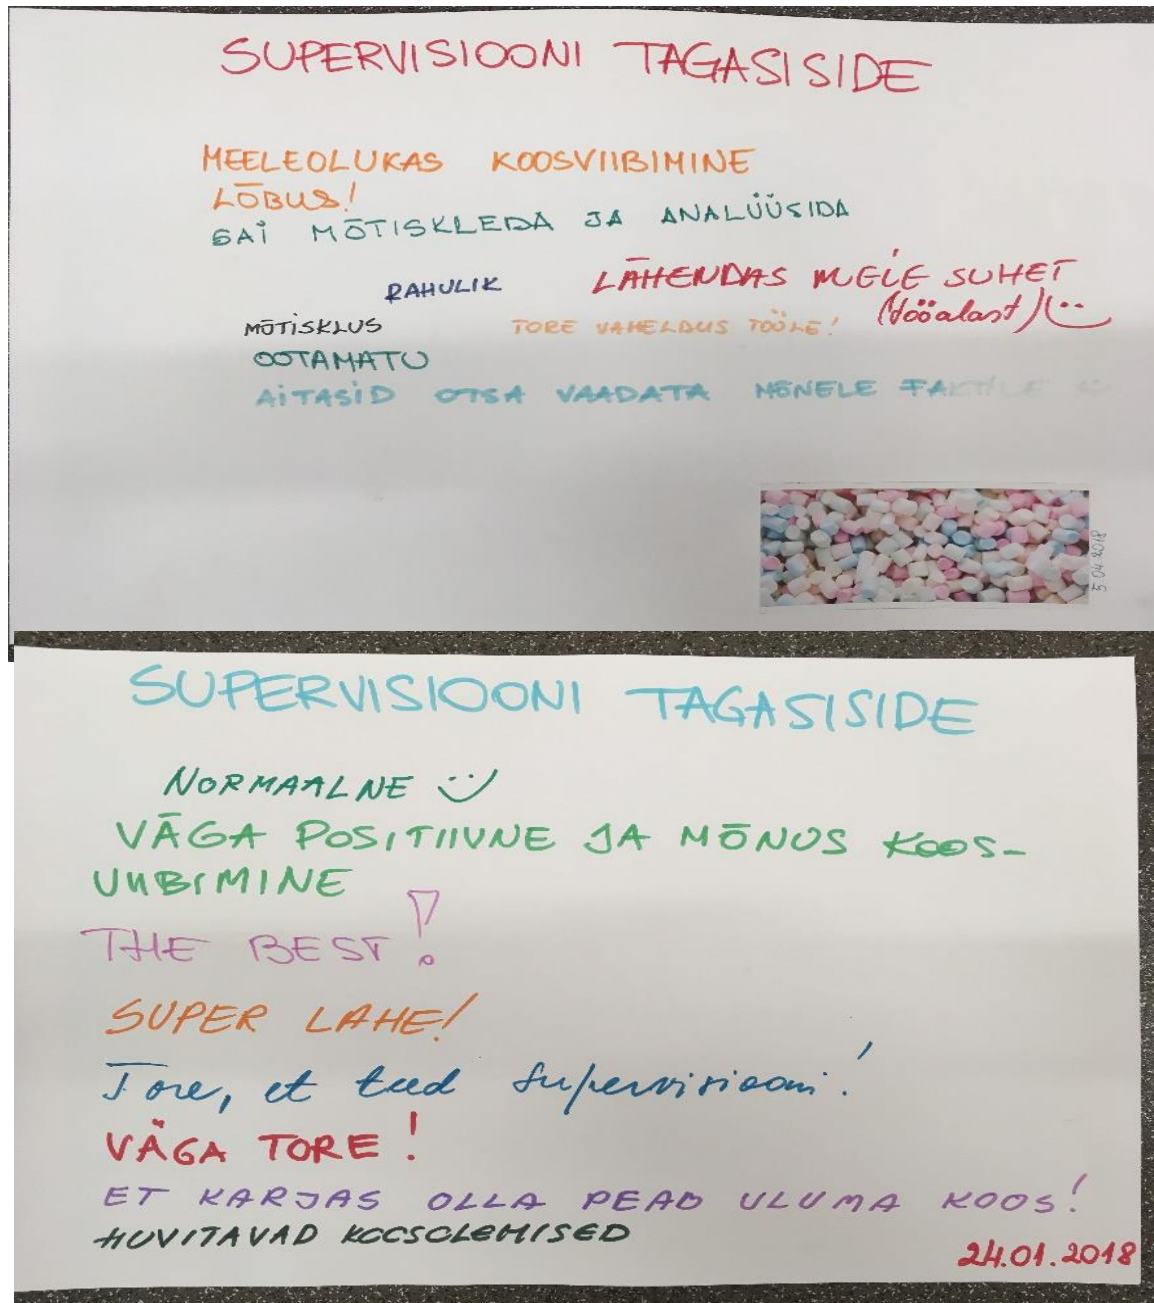 SUPERVISIOONI TAGASISIDE
MEELEOLUKAS KOOSVIIBIMINE
LÕBUS!
SAI MÕTISKLEDA JA ANALÜÜSIDA
RAHULIK LÄHENDAS MEIE SUHET
(tööalast)
MÕTISKLUS TORE VAHELDUS TÖÖLE!
OOTAMATU
AITASID OTSA VAADATA MÕNELE FAKTILE
5.04.2018
SUPERVISIOONI TAGASISIDE
NORMAALNE
VÄGA POSITIIVNE JA MÕNUS KOOS-
VIIBIMINE
THE BEST!
SUPER LAHE!
Tore, et teed supervisiooni!
VÄGA TORE!
ET KARJAS OLLA PEAD ULUMA KOOS!
HUVITAVAD KOOSOLEMISED
24.01.2018